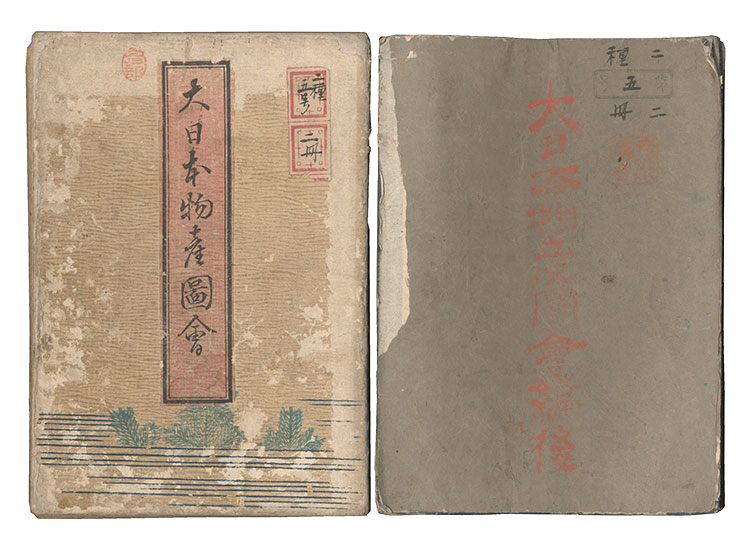 大日本物産圖會
二種
二冊
二種
五
二冊
大日本物産圖會